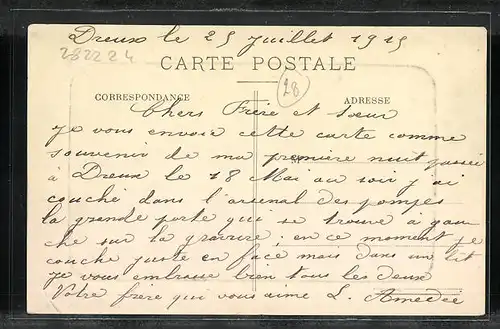 Dreux le 25 juillet 1915
282224
CARTE POSTALE
28
CORRESPONDANCE
ADRESSE
Chers Frère et Sœur
je vous envoie cette carte comme
souvenir de ma première nuit passée
à Dreux le 18 Mai au soir j'ai
couché dans l'arsenal des pompes
la grande porte qui se trouve à gau
che sur la gravure ; en ce moment je
couche juste en face mais dans un lit
je vous embrasse bien tous les deux
Votre frère qui vous aime L. Amédée